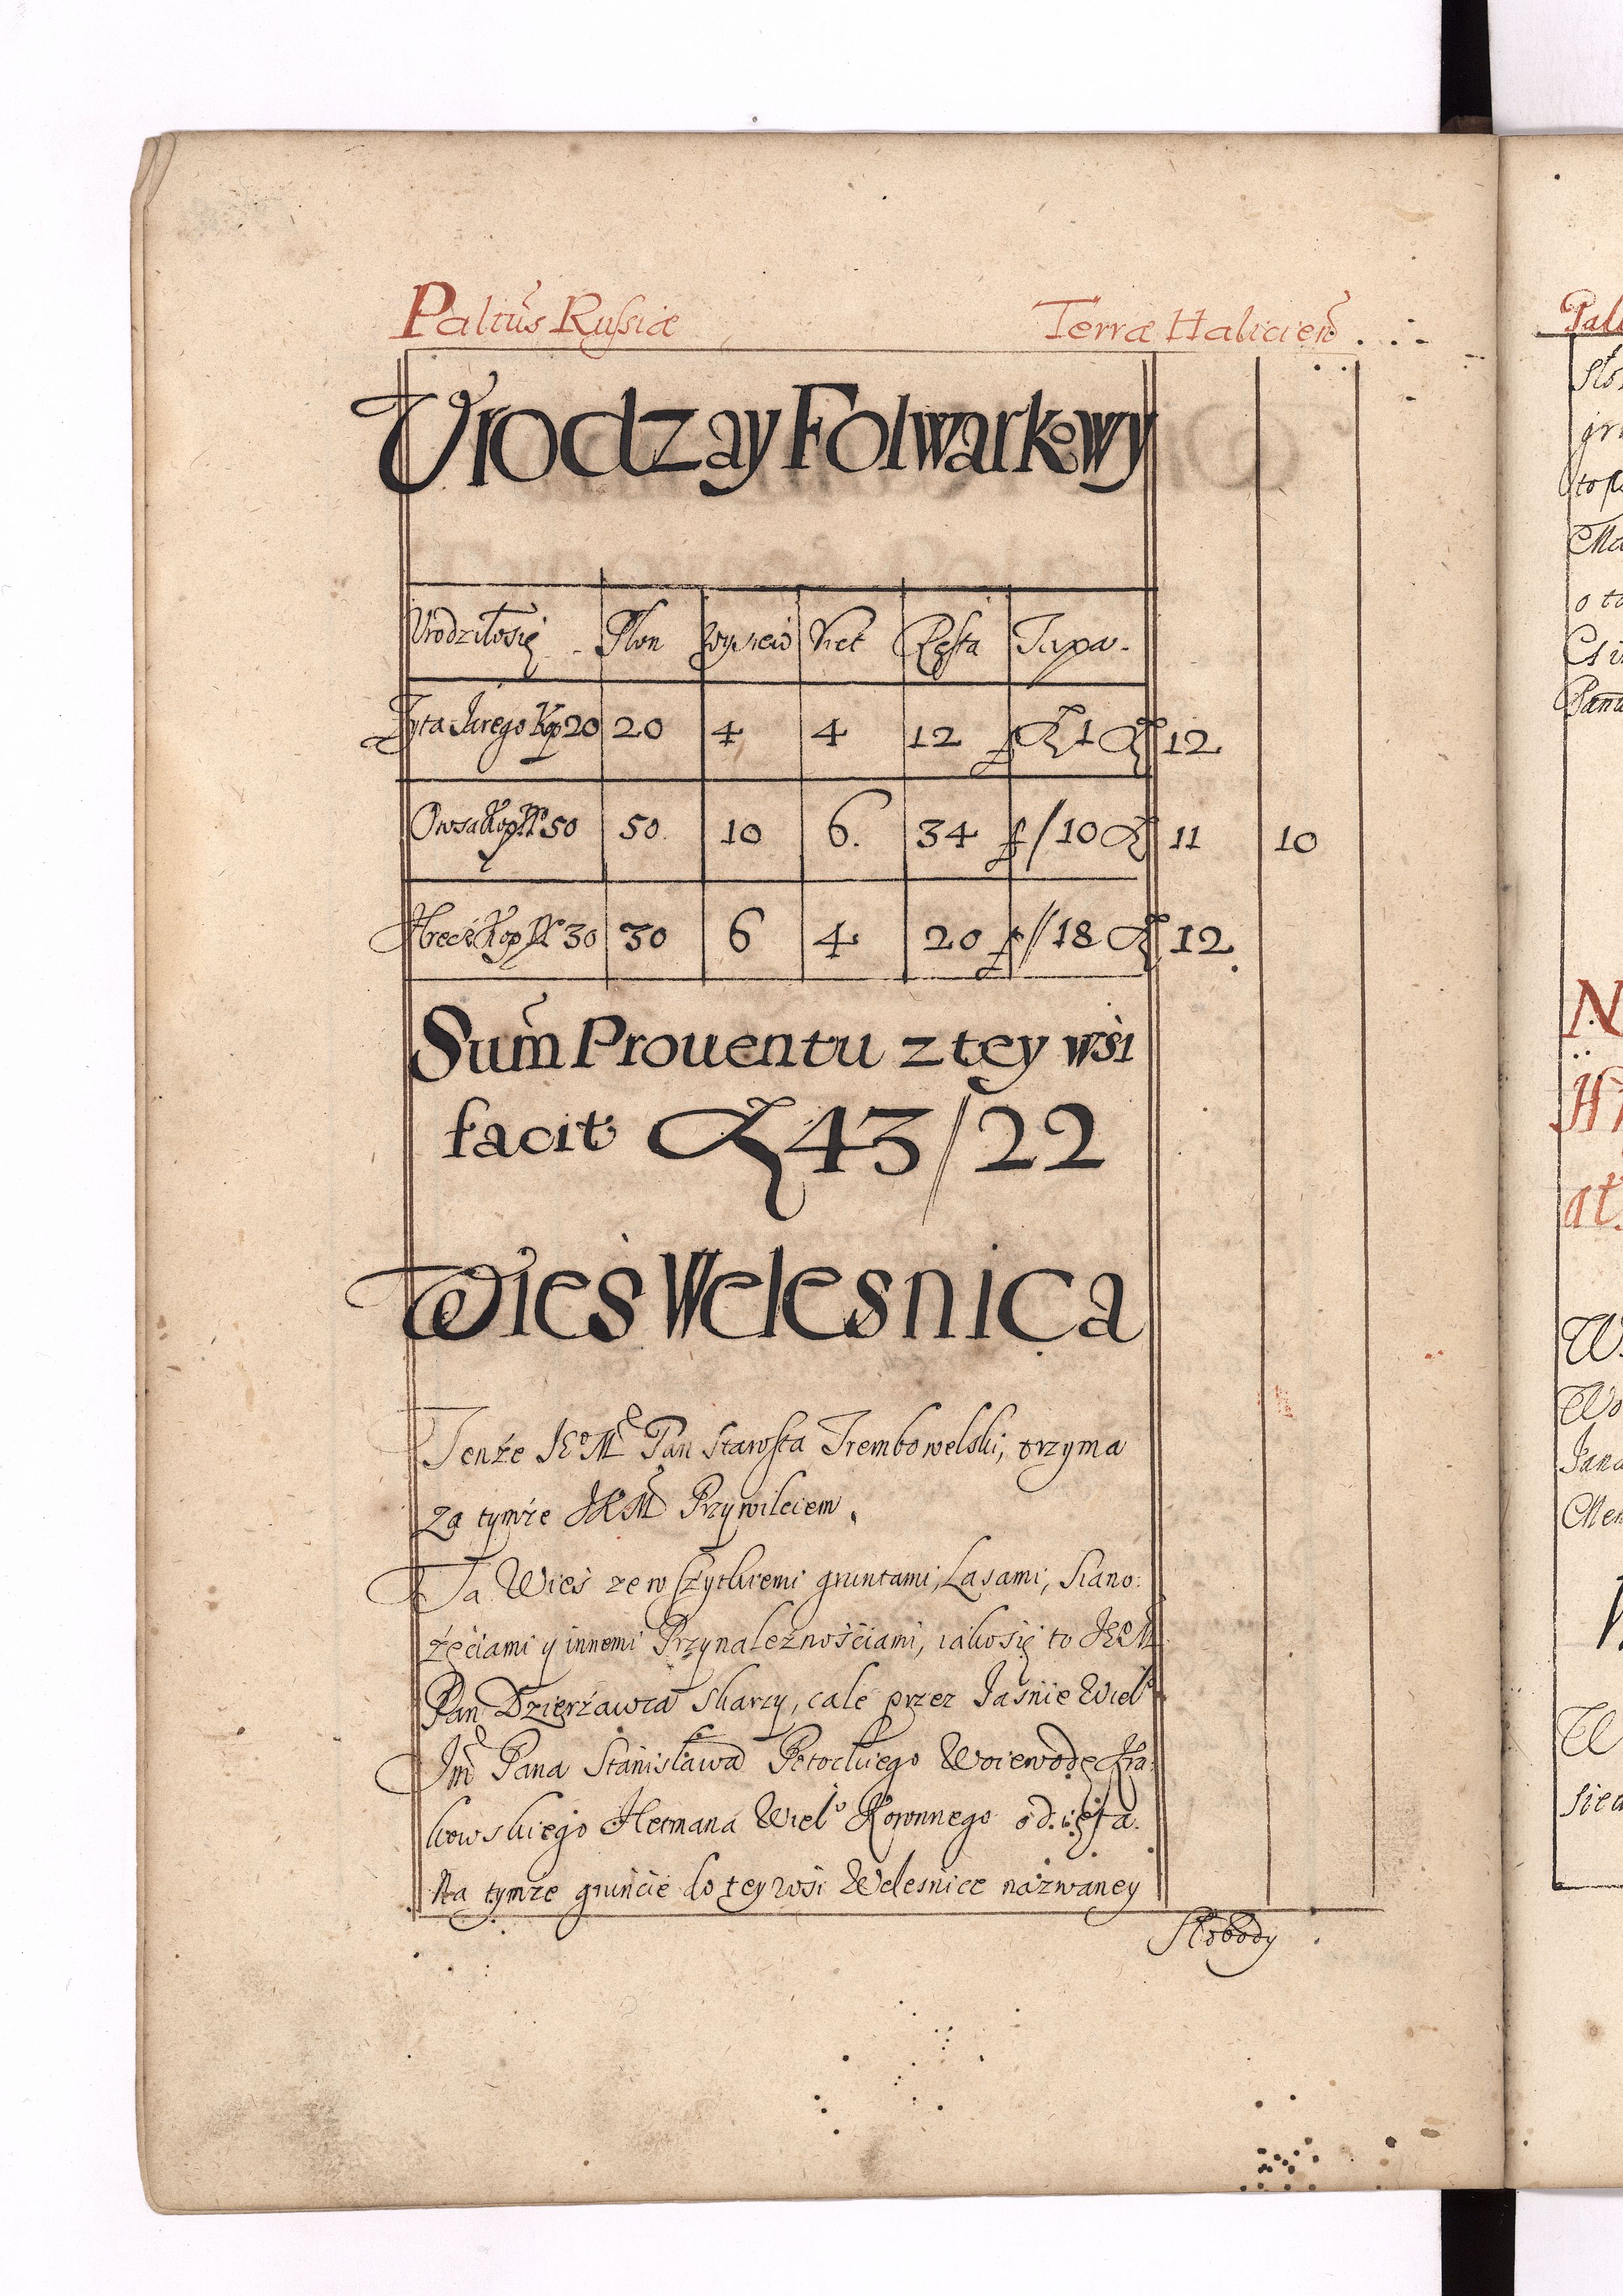 Paltūs Rusſiæ Terræ Halicień
Vrodzay Folwarkowy
Vrodziłosię Plon wysiew Vict Ręsta Taxa
Zyta Jarego Kop 20 20 4 4 12 ƒ 1 12
Owsa Kop 50 50 10 6. 34 ƒ/10 11 10
Hreczki Kop 30 30 6 4 20 ƒ//18 12
Sum̃ Prouentu z tey wśi
facit 43/22
Wieś Welesnica
Tenże JEoMć Pan Starosta Trembowelski, trzyma
za tymże JKMći Przywileiem.
Ta Wieś ze wszytkiemi gruntami, Lasami, Siano:
żęciami y innemi Przynależnośćiami, iako się to JEoMć
Pan Dzierżawca skarzy, całe przez Jaśnie Wielo
Jmći Pana Stanisława Potockiego Woiewodę Kra:
kowskiego Hetmana Wielo Koronnego odięta.
Na tymże grunćie do tey wśi Welesnice nazwaney
Słobody
Pal
Sło
gr
to
o to
Cs
Pana
N
at
W
Wo
Jana
W
W